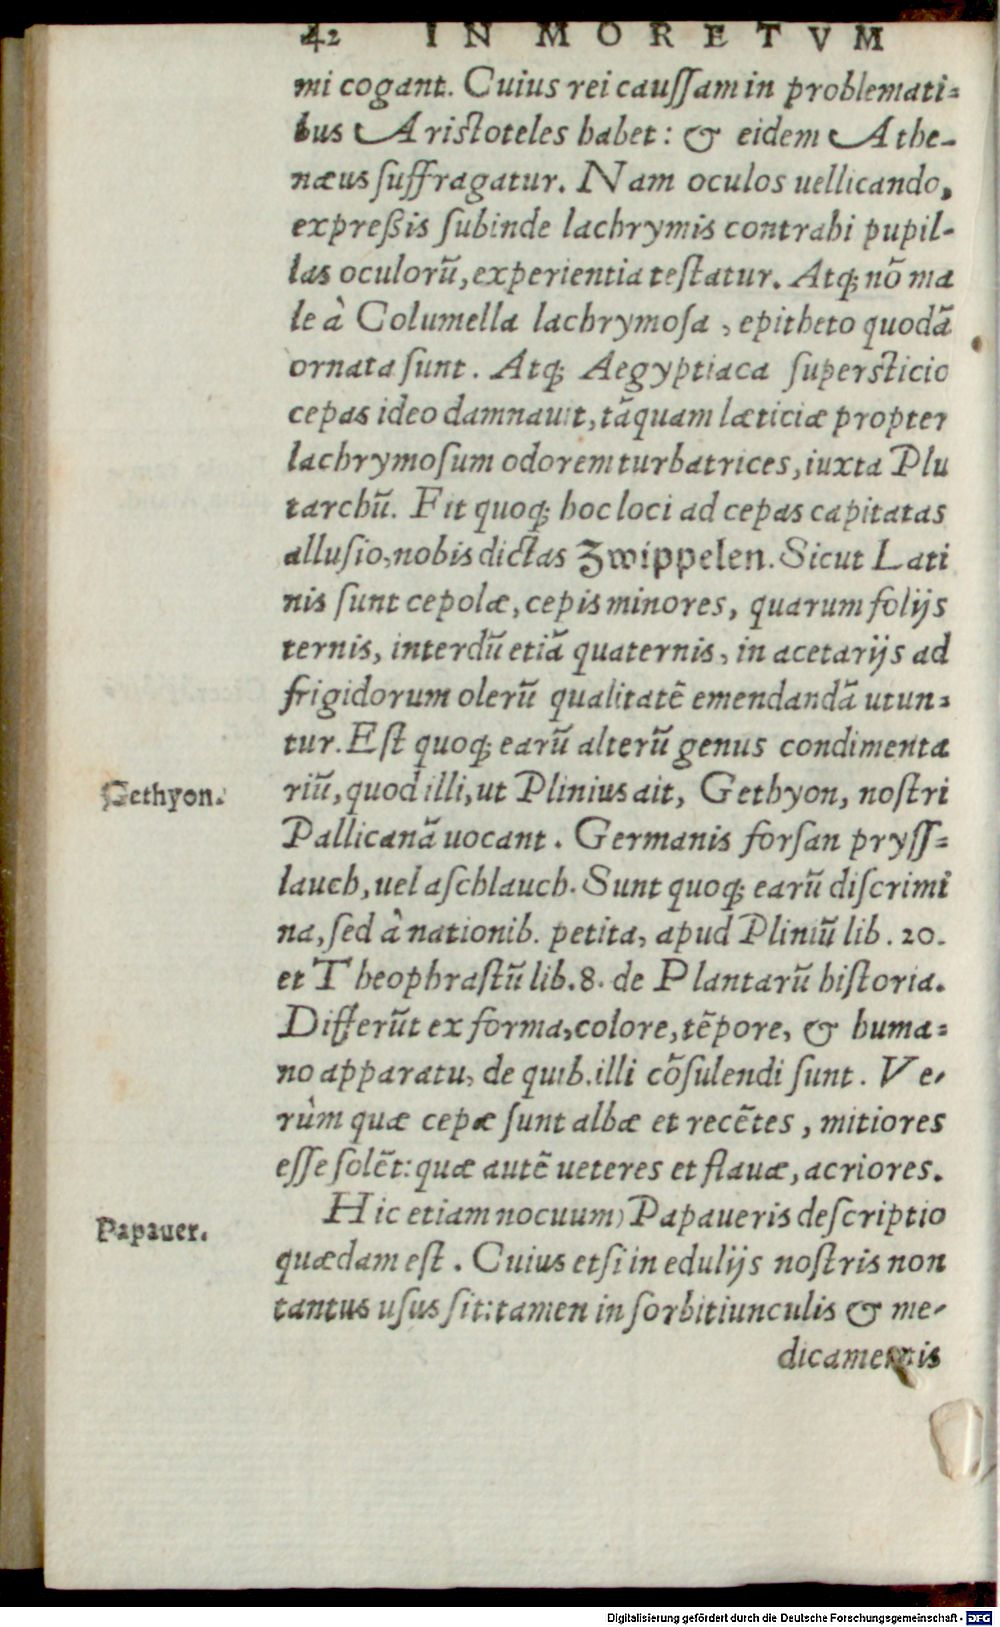 42 IN MORETVM
mi cogant. Cuius rei cauſſam in problemati=
bus Ariſtoteles habet: & eidem Athe-
næus ſuffragatur. Nam oculos uellicando,
expreßis ſubinde lachrymis contrahi pupil-
las oculorũ, experientia teſtatur. Atq; nõ ma
le à Columella lachrymoſa, epitheto quodã
ornata ſunt. Atq; Aegyptiaca ſuperſticio
cepas ideo damnauit, tãquam læticiæ propter
lachrymoſum odorem turbatrices, iuxta Plu
tarchũ. Fit quoq; hoc loci ad cepas capitatas
alluſio, nobis dictas Zwippelen. Sicut Lati
nis ſunt cepolæ, cepis minores, quarum folijs
ternis, interdũ etiã quaternis, in acetarijs ad
frigidorum olerũ qualitatẽ emendandã utun=
tur. Eſt quoq; earũ alterũ genus condimenta
Gethyon.
riũ, quod illi, ut Plinius ait, Gethyon, noſtri
Pallicanã uocant. Germanis forſan pryſſ=
lauch, uel aſchlauch. Sunt quoq; earũ diſcrimi
na, ſed à nationib. petita, apud Pliniũ lib. 20.
et Theophraſtũ lib. 8. de Plantarũ hiſtoria.
Differũt ex forma, colore, tẽpore, & huma=
no apparatu, de quib. illi cõſulendi ſunt. Ve-
rùm quæ cepæ ſunt albæ et recẽtes, mitiores
eſſe ſolẽt: quæ autẽ ueteres et flauæ, acriores.
Papauer.
Hic etiam nocuum) Papaueris deſcriptio
quædam eſt. Cuius etſi in edulijs noſtris non
tantus uſus ſit: tamen in ſorbitiunculis & me-
dicamentis
Digitalisierung gefördert durch die Deutsche Forschungsgemeinschaft - DFG